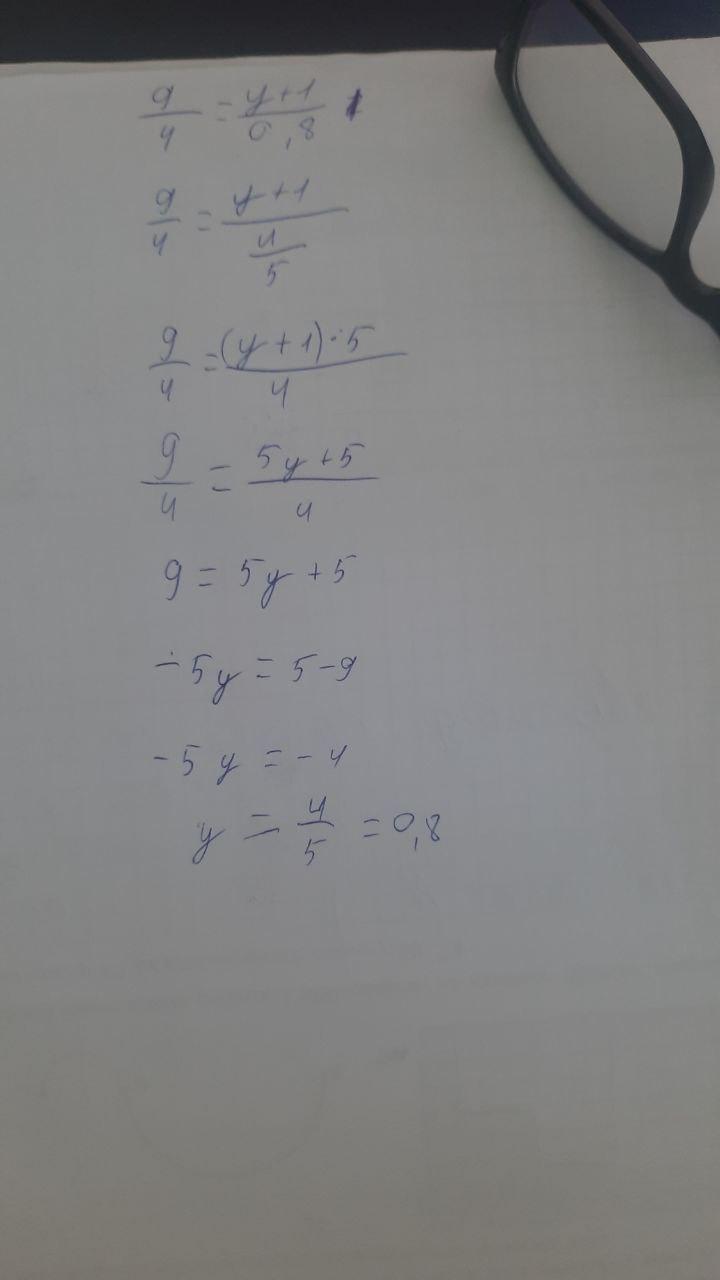 9/4 = (y+1)/0,8
9/4 = (y+1)/(4/5)
9/4 = ((y+1)·5)/4
9/4 = (5y+5)/4
9 = 5y+5
-5y = 5-9
-5y = -4
y = 4/5 = 0,8